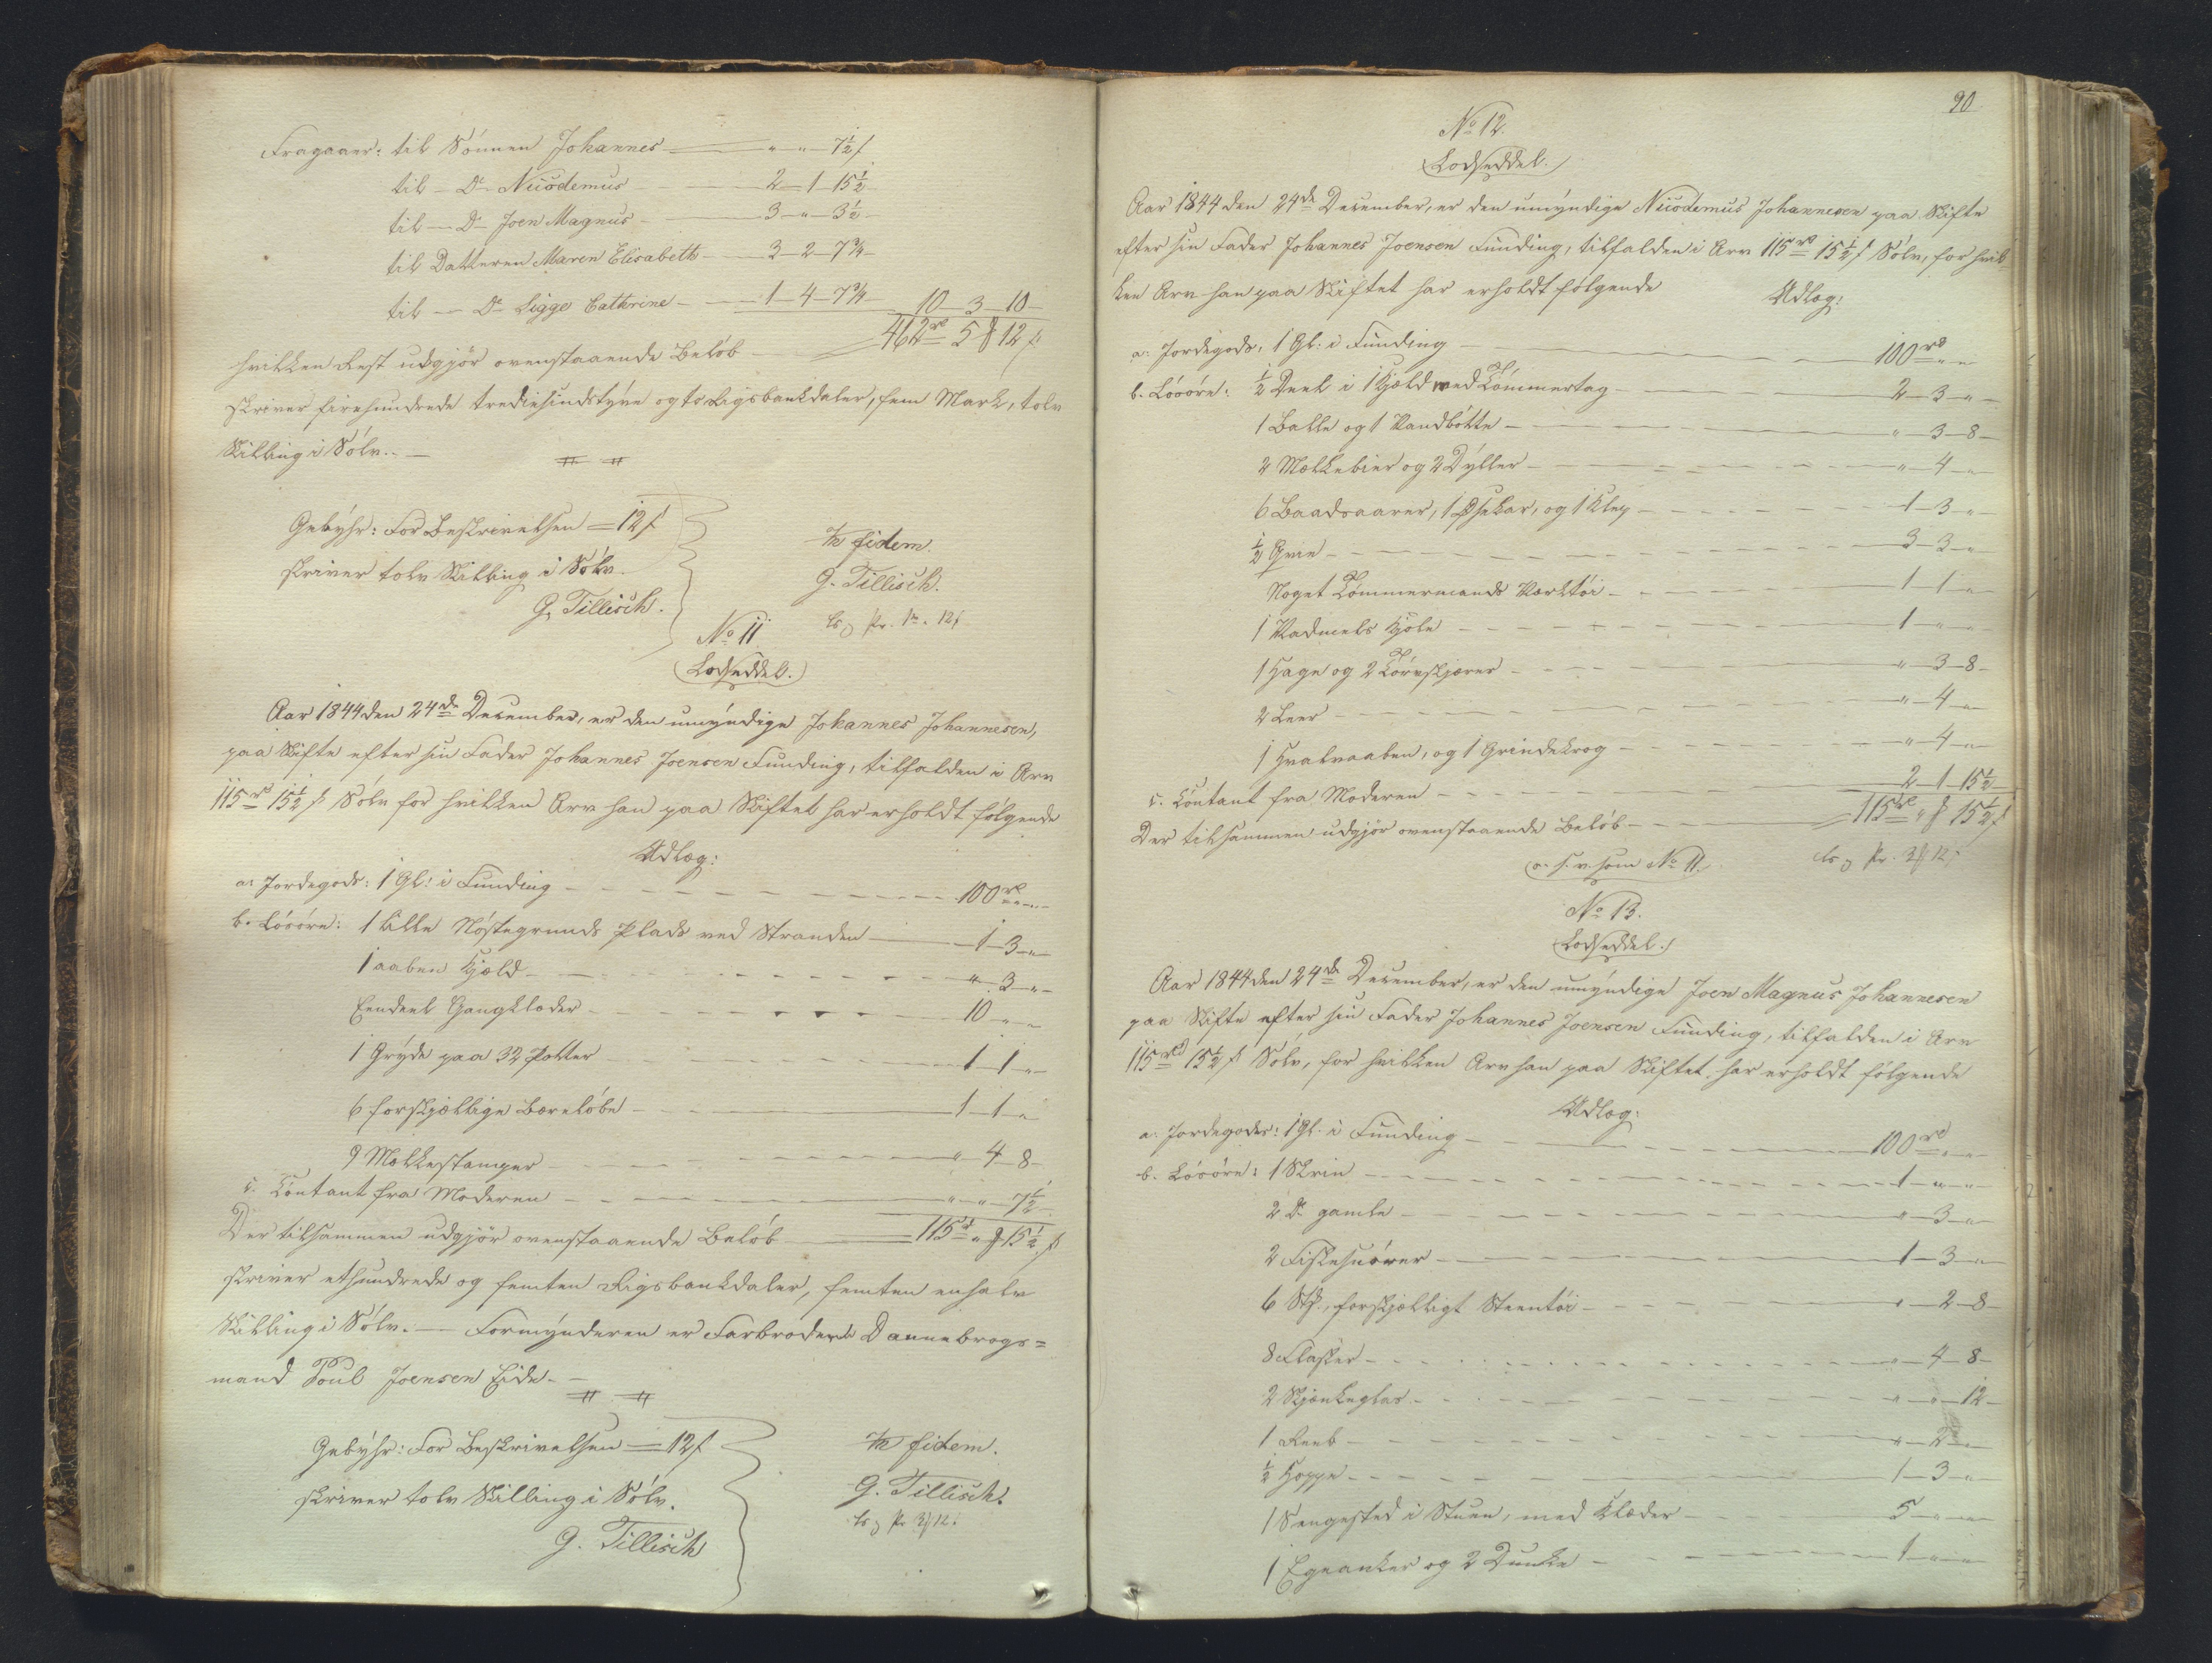 Fragaaer: til Sönnen Johannes — " — " — 7½ ß
til — Do Nicodemus — 2 — 1 — 15½
til — Do Joen Magnus — 3 — " — 3½
til Datteren Maren Elisabeth — 3 — 2 — 7¾
til — Do Sigge Cathrine — 1 — 4 — 7¾ — 10 — 3 — 10
hvilken Rest udgjör ovenstaaende Belöb — 462 rd 5 ℳ 12 ß
skriver firehundrede trediesindstyve og to Rigsbankdaler, fem Mark, tolv
Skilling i Sölv. —
Gebyhr: For Beskrivelsen = 12 ß
skriver tolv Skilling i Sölv.
G. Tillisch.
In fidem.
G. Tillisch.
No 11
Lodseddel.
Aar 1844 den 24de December, er den umyndige Johannes Johannesen,
paa Skifte efter sin Fader Johannes Joensen Funding, tilfalden i Arv
115 rd 15½ ß Sölv for hvilken Arv han paa Skiftet har erholdt fölgende
Udlæg:
a. Jordegods: 1 Gl: i Funding — 100 rd " — "
b. Lösöre: 1 lille Nöstegrunds Plads ved Stranden — 1 — 3 — "
1 aaben Hjeld — " — 3 — "
Eendeel Gangklæder — 10 — " — "
1 Gryde paa 32 Potter — 1 — 1 — "
6 forskjellige Bæreløbe — 1 — 1 — "
9 Melkestamper — " — 4 — 8
c. Contant fra Moderen — " — " — 7½
Der tilsammen udgjör ovenstaaende Belöb — 115 rd " ℳ 15½ ß
skriver ethundrede og femten Rigsbankdaler, femten enhalv
Skilling i Sölv. — Formynderen er Farbroderen Dannebrogs=
mand Poul Joensen Eide. —
Gebyhr: For Beskrivelsen = 12 ß
skriver tolv Skilling i Sölv.
G. Tillisch
In fidem.
G. Tillisch.
90
No 12.
Lodseddel.
Aar 1844 den 24de December, er den umyndige Nicodemus Johannesen paa Skifte
efter sin Fader Johannes Joensen Funding, tilfalden i Arv 115 rd 15½ ß Sölv, for hvil-
ken Arv han paa Skiftet har erholdt fölgende
Udlæg:
a. Jordegods, 1 Gl: i Funding — 100 rd " — "
b. Lösöre: ½ Deel i 1 Hjeld med Tömmertag — 2 — 3 — "
1 Balle og 1 Vandbötte — " — 3 — 8
2 Melkebier og 2 Dyller — " — 4 — "
6 Baadsaarer, 1 Øsekar, og 1 Klep — 1 — 3 — "
½ Qvie — 3 — 3 — "
Noget Tömmermands Værktöi — 1 — 1 — "
1 Vadmels Kjole — 1 — " — "
1 Hage og 2 Törvskjærer — " — 3 — 8
2 Leer — " — 4 — "
1 Hvalvaaben, og 1 Grindekrog — " — 4 — "
c. Contant fra Moderen — 2 — 1 — 15½
Der tilsammen udgjör ovenstaaende Belöb — 115 rd " ℳ 15½ ß
o. s. v. som No 11.
No 13.
Lodseddel.
Aar 1844 den 24de December, er den umyndige Joen Magnus Johannesen
paa Skifte efter sin Fader Johannes Joensen Funding, tilfalden i Arv
115 rd 15½ ß Sölv, for hvilken Arv han paa Skiftet har erholdt fölgende
Udlæg:
a. Jordegods: 1 Gl. i Funding — 100 rd " — "
b. Lösöre: 1 Skrin — 1 — " — "
2 Do gamle — " — 3 — "
2 Fiskesnörer — 1 — 3 — "
6 Stk., forskjelligt Steentöi — " — 2 — 8
8 Flasker — " — 4 — 8
2 Skjænkeglas — " — " — 12
1 Reeb — " — 2 — "
½ Hoppe — 1 — 3 — "
1 Sengested i Stuen, med Klæder — 5 — " — "
1 Egeanker og 2 Dunke — 1 — " — "